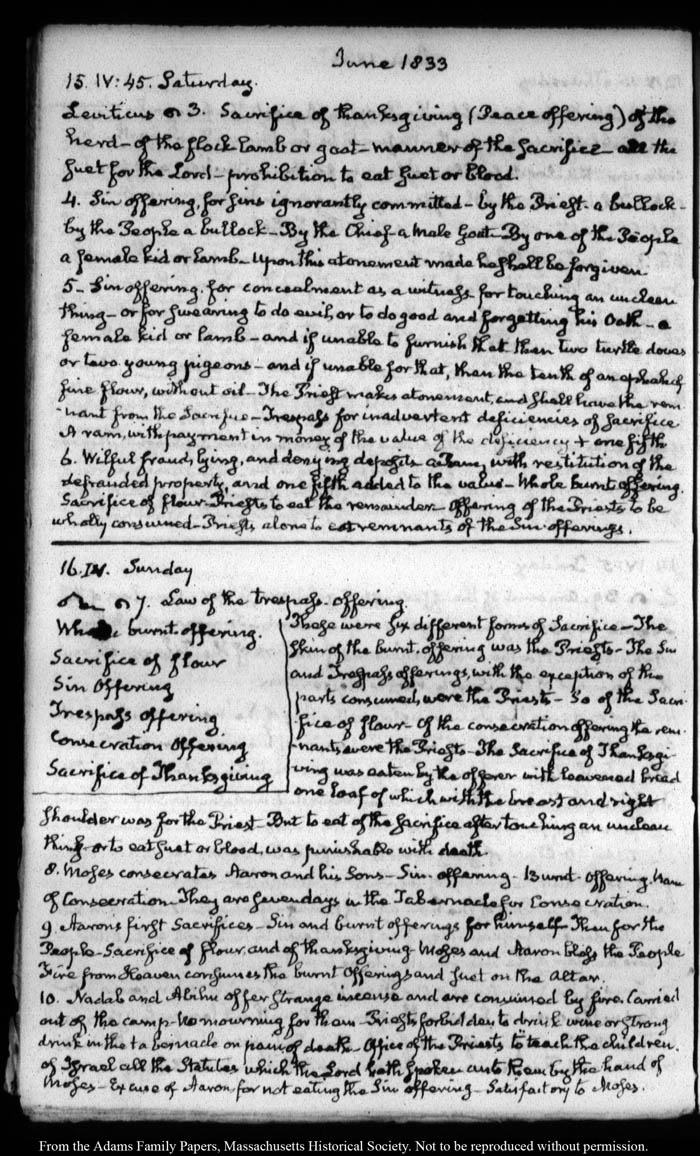 June 1833
15. IV: 45. Saturday.
Leviticus 3. Sacrifice of thanksgiving (Peace offering) of the
herd – of the flock lamb or goat – manner of the Sacrifice – all the
suet for the Lord – prohibition to eat suet or blood.
4. Sin offering, for sins ignorantly committed – by the Priest – a bullock –
by the People a bullock – By the Chief – a Male Goat – By one of the People
a female kid or lamb – Upon this atonement made he shall be forgiven
5 – Sin offering, for concealment as a witness – for touching an unclean
thing – or for swearing to do evil, or to do good and forgetting his Oath – a
female kid or lamb – and if unable to furnish that then two turtle doves
or two young pigeons – and if unable for that, than the tenth of an ephah of
fine flour, without oil – The Priest makes atonement, and shall have the rem-
-nant from the Sacrifice – Trespass for inadvertent deficiencies of Sacrifice
A ram, with payment in money of the value of the deficiency + one fifth
6. Wilful fraud, lying, and denying deposits a Ram, with restitution of the
defrauded property, and one fifth added to the value – Whole burnt offering.
Sacrifice of flour – Priests to eat the remainder – Offering of the Priests to be
wholly consumed – Priests alone to eat remnants of the Sin offerings.
16. IV. Sunday
7. Law of the trespass offering.
Whole burnt offering.
Sacrifice of flour
Sin Offering
Trespass offering
Consecration Offering
Sacrifice of Thanksgiving
These were six different forms of Sacrifice – The
skin of the burnt offering was the Priests – The Sin
and Trespass offerings, with the exception of the
parts consumed, were the Priests – So of the Sacri-
fice of flour – Of the consecration offering the rem-
-nants were the Priests – The Sacrifice of Thanksgi-
ving was eaten by the offerer with leavened bread
one loaf of which with the breast and right
shoulder was for the Priest – But to eat of the Sacrifice after touching an unclean
thing – or to eat suet or blood, was punishable with death.
8. Moses consecrates Aaron and his Sons – Sin offering – Burnt Offering. Ram
of Consecration – They are seven days in the Tabernacle for Consecration.
9. Aaron's first Sacrifices – Sin and burnt offerings for himself – Then for the
People – Sacrifice of flour, and of thanksgiving – Moses and Aaron bless the People
Fire from Heaven consumes the burnt Offerings and suet on the Altar.
10. Nadab and Abihu offer strange incense and are consumed by fire. Carried
out of the camp – No mourning for them – Priests forbidden to drink wine or strong
drink in the tabernacle on pain of death – Office of the Priests to teach the children
of Israel all the Statutes which the Lord hath spoken unto them by the hand of
Moses – Excuse of Aaron for not eating the Sin offering – Satisfactory to Moses.
From the Adams Family Papers, Massachusetts Historical Society. Not to be reproduced without permission.